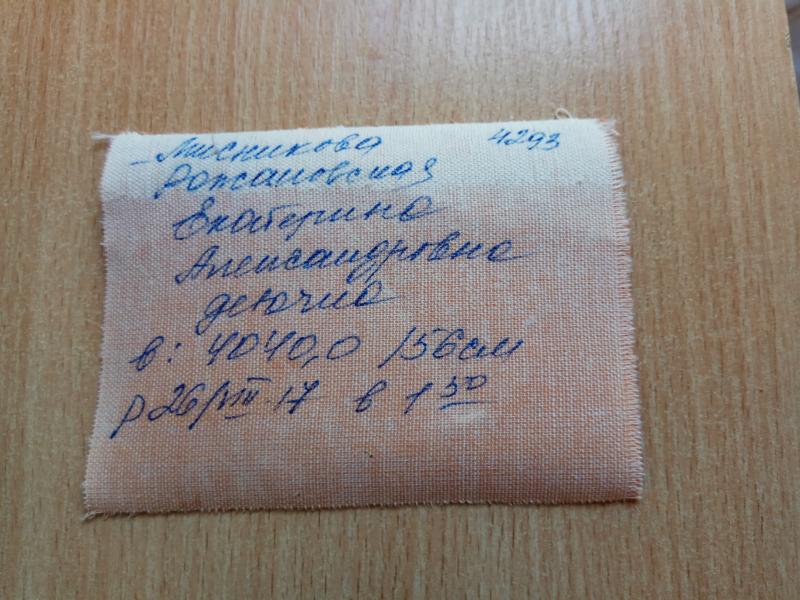 Мисникова 4293
Рожановская
Екатерина
Александровна
девочка
в: 4040,0 /56см
р 26/VIII-17 в 1 50